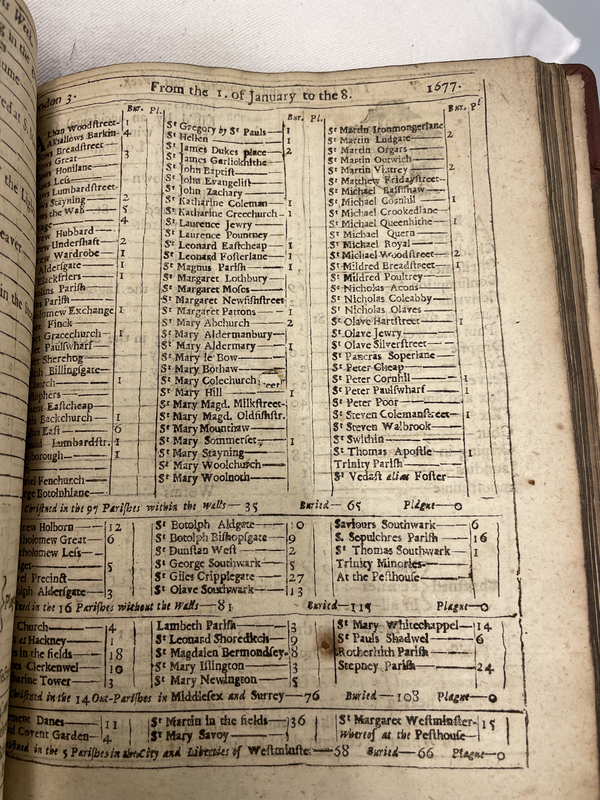 London 3. From the 1. of January to the 8. 1677.
Bur. Pl.
Woodstreet— 1
Alhallows Barkin— 4
Breadstreet—
Great— 3
Honilane—
Less—
Lumbardstreet—
Stayning— 2
the Wall— 5
4
Hubbard—
Undershaft— 2
Wardrobe— 1
Aldersgate— 1
Blackfriers— 1
Parish—
Parish—
Exchange 1
Finck
Gracechurch— 1
Paulswharf—
Sherehog—
Billingsgate—
1
Eastcheap
Backchurch— 1
East— 6
Lumbardstr. 1
1
Fenchurch—
Botolphlane—
Bur. Pl.
St Gregory by St Pauls— 1
St Hellen— 1
St James Dukes place— 2
St James Garlickhithe—
St John Baptist—
St John Evangelist—
St John Zachary—
St Katharine Coleman— 1
St Katharine Creechurch— 1
St Laurence Jewry—
St Laurence Pountney—
St Leonard Eastcheap 1
St Leonard Fosterlane— 1
St Magnus Parish— 1
St Margaret Lothbury—
St Margaret Moses—
St Margaret Newfishstreet
St Margaret Pattons— 1
St Mary Abchurch 2
St Mary Aldermanbury—
St Mary Aldermary— 1
St Mary le Bow—
St Mary Bothaw—
St Mary Colechurch—
St Mary Hill— 1
St Mary Magd. Milkstreet—
St Mary Magd. Oldfishstr.
St Mary Mountfaw—
St Mary Sommerset— 1
St Mary Stayning—
St Mary Woolchurch—
St Mary Woolnoth—
Bur. Pl
St Martin Ironmongerlane
St Martin Ludgate— 2
St Martin Orgars—
St Martin Outwich—
St Martin Vintrey— 2
St Matthew Fridaystreet—
St Michael Bassishaw—
St Michael Cornhil— 1
St Michael Crookedlane—
St Michael Queenhithe— 1
St Michael Quern—
St Michael Royal—
St Michael Woodstreet— 2
St Mildred Breadstreet— 1
St Mildred Poultrey—
St Nicholas Acons—
St Nicholas Coleabby—
St Nicholas Olaves—
St Olave Hartstreet— 1
St Olave Jewry—
St Olave Silverstreet—
St Pancras Soperlane—
St Peter Cheap—
St Peter Cornhil— 1
St Peter Paulswharf— 1
St Peter Poor—
St Steven Colemanstreet— 1
St Steven Walbrook—
St Swithin
St Thomas Apostle— 1
Trinity Parish—
St Vedast alias Foster—
Christned in the 97 Parishes within the Walls— 35 Buried— 65 Plague—0
Holborn— 12
Great— 6
Less—
5
Precinct—
Aldersgate— 3
St Botolph Aldgate— 10
St Botolph Bishopsgate— 9
St Dunstan West— 2
St George Southwark— 5
St Giles Cripplegate— 27
St Olave Southwark— 13
Saviours Southwark— 6
S. Sepulchres Parish— 16
St Thomas Southwark— 1
Trinity Minories—
At the Pesthouse—
in the 16 Parishes without the Walls— 81 Buried—115 Plague—0
Church— 4
at Hackney—
in the fields— 18
Clerkenwel— 10
Tower— 3
Lambeth Parish— 3
St Leonard Shoreditch— 9
St Magdalen Bermondsey— 8
St Mary Islington— 3
St Mary Newington— 5
St Mary Whitechappel— 14
St Pauls Shadwel— 6
Rotherhith Parish—
Stepney Parish— 24
Christned in the 14 Out-Parishes in Middlesex and Surrey—76 Buried—108 Plague—0
Danes— 11
Covent Garden— 4
St Martin in the fields— 36
St Mary Savoy— 1
St Margaret Westminster— 15
Whereof at the Pesthouse—
in the 5 Parishes in the City and Liberties of Westminste.—68 Buried—66 Plague—0